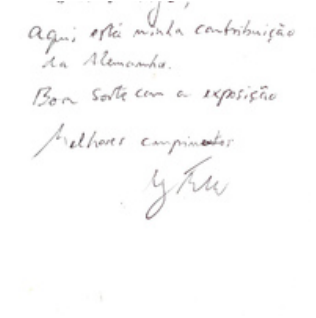 Aqui está minha contribuição
da Alemanha.
Boa sorte com a exposição
Melhores cumprimentos